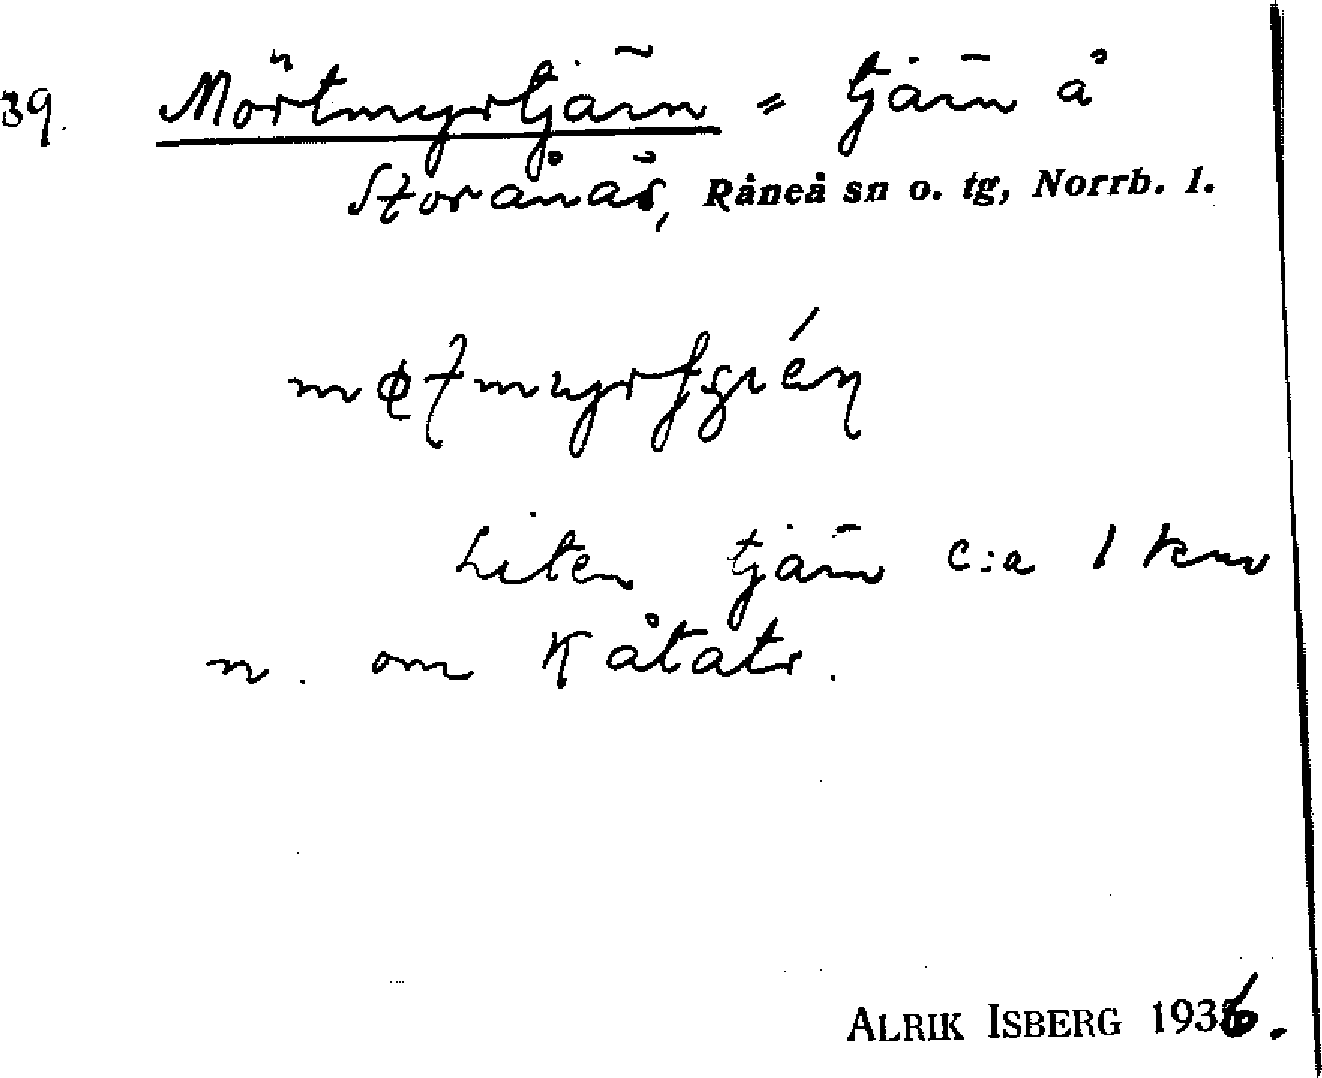 39. Mörtmyrtjärn = tjärn å
Storånäs, Råneå sn o. tg, Norrb. l.
Liten tjärn c:a 1 km
n. om Kåtatr.
ALRIK ISBERG 1936.